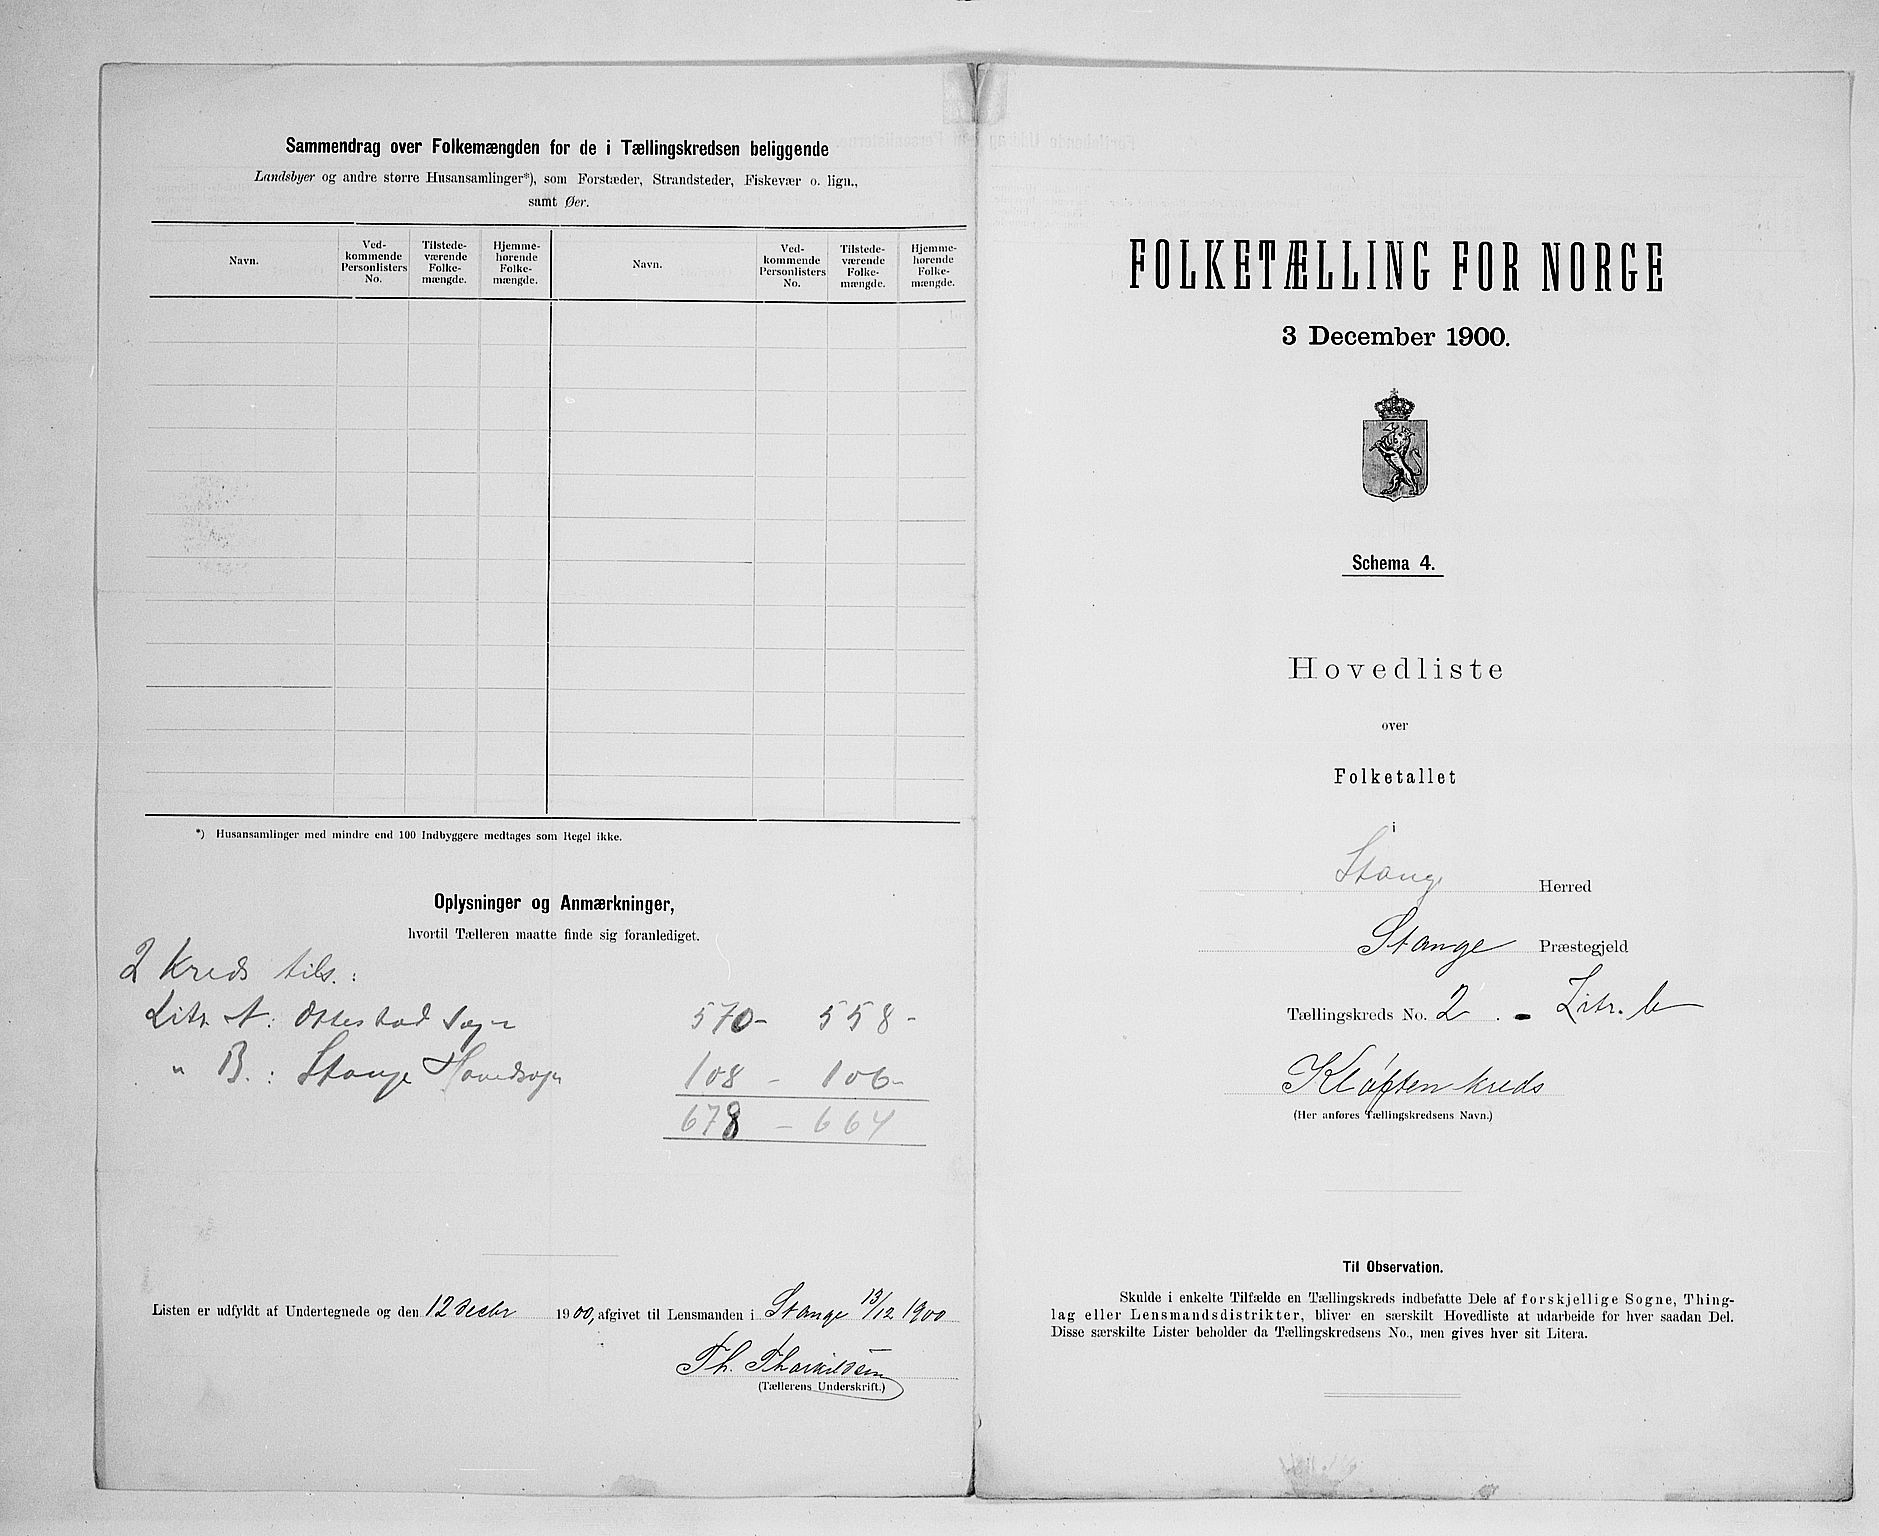 Sammendrag over Folkemængden for de i Tællingskredsen beliggende
Landsbyer og andre større Husansamlinger*), som Forstæder, Strandsteder, Fiskevær o. lign.,
samt Øer.
Navn.
Ved-
kommende
Personlisters
No.
Tilstede-
værende
Folke-
mængde.
Hjemme-
hørende
Folke-
mængde.
Navn.
Ved-
kommende
Personlisters
No.
Tilstede-
værende
Folke-
mængde.
Hjemme-
hørende
Folke-
mængde.
*) Husansamlinger med mindre end 100 Indbyggere medtages som Regel ikke.
Oplysninger og Anmærkninger,
hvortil Tælleren maatte finde sig foranlediget.
2 Kreds tils.:
Litr. A: Ottestad Sogn 570 - 558 -
" B.: Stange Hovedsogn 108 - 106 -
678 - 664
Listen er udfyldt af Undertegnede og den 12 Decbr 1900, afgivet til Lensmanden i Stange 13/12 1900
Th. Thorkildsen
(Tællerens Underskrift.)
FOLKETÆLLING FOR NORGE
3 December 1900.
Schema 4.
Hovedliste
over
Folketallet
i
Stange Herred
Stange Præstegjeld
Tællingskreds No. 2. - Litr. b
Kløften kreds
(Her anføres Tællingskredsens Navn.)
Til Observation.
Skulde i enkelte Tilfælde en Tællingskreds indbefatte Dele af forskjellige Sogne, Thing-
lag eller Lensmandsdistrikter, bliver en særskilt Hovedliste at udarbeide for hver saadan Del.
Disse særskilte Lister beholder da Tællingskredsens No., men gives hver sit Litera.